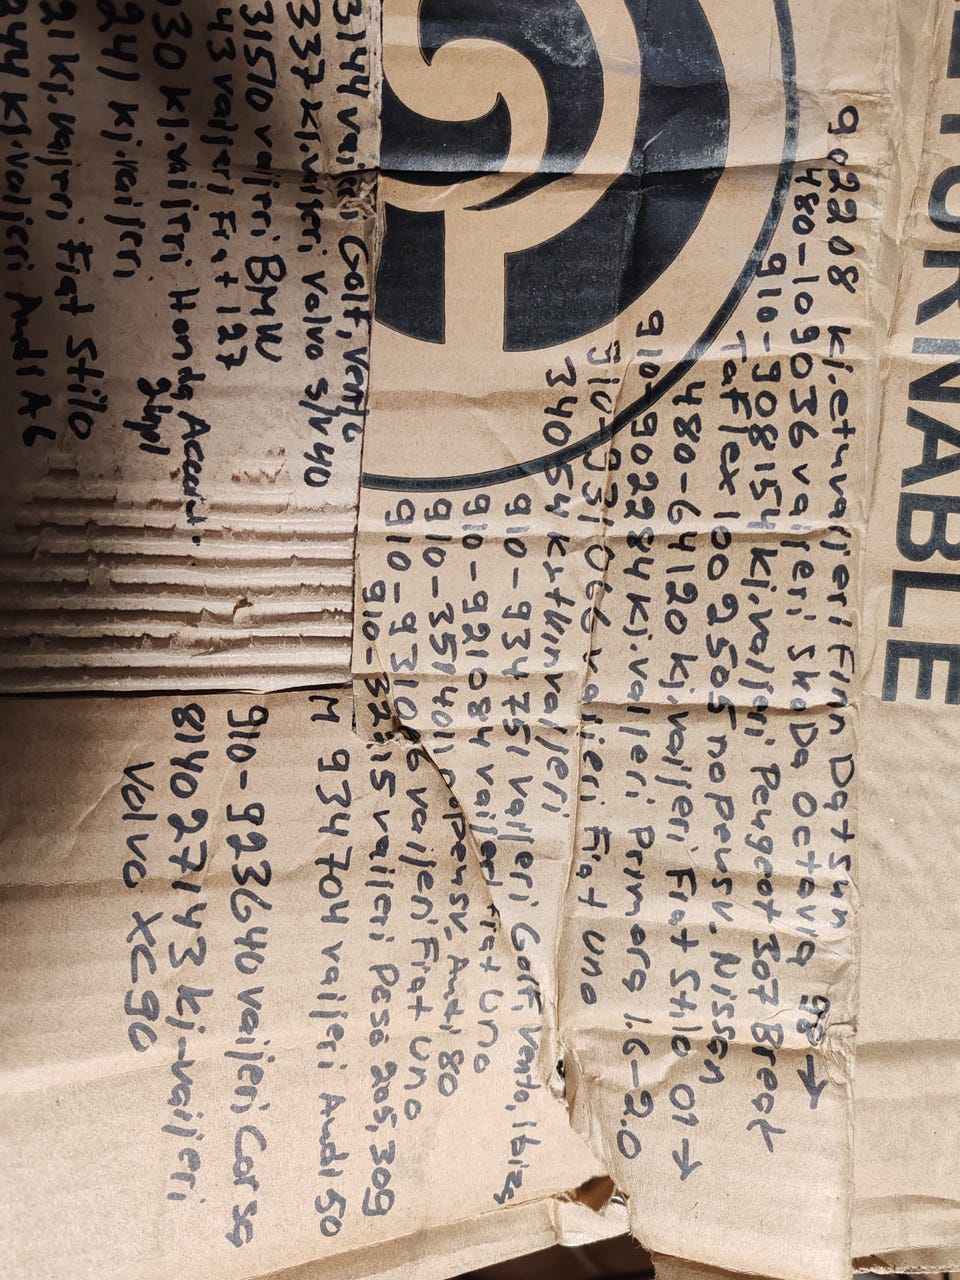 RNABLE
902208 kj.etuvaijeri Finn Datsun
480-109036 vaijeri Skoda Octavia 98→
910-908154 kj.vaijeri Peugeot 307 Break
Taflex 100 2505 nopeusv. Nissan
480-64120 kj.vaijeri Fiat Stilo 01→
910-902284 kj.vaijeri Primera 1.6-2.0
vaijeri Fiat Uno
34054 kytkinvaijeri
910-934751 vaijeri Golf, Vento, Ibiza
910-921084 vaijeri Fiat Uno
910-351401 Audi 80
vaijeri Fiat Uno
vaijeri Pesa 205, 309
M 934704 vaijeri Audi 50
910-923640 vaijeri Corsa
8140 27143 kj-vaijeri
Volvo XC90
Golf, Vento
337 kj.vaijeri Volvo S/V40
31570 vaijeri BMW
43 vaijeri Fiat 127
30 kj.vaijeri Honda
241 kj.vaijeri
21 kj.vaijeri Fiat Stilo
244 kj.vaijeri Audi A6